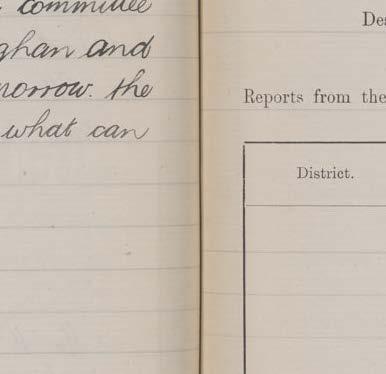 committee
ghan and
morrow. the
what can
Des
Reports from the
District.